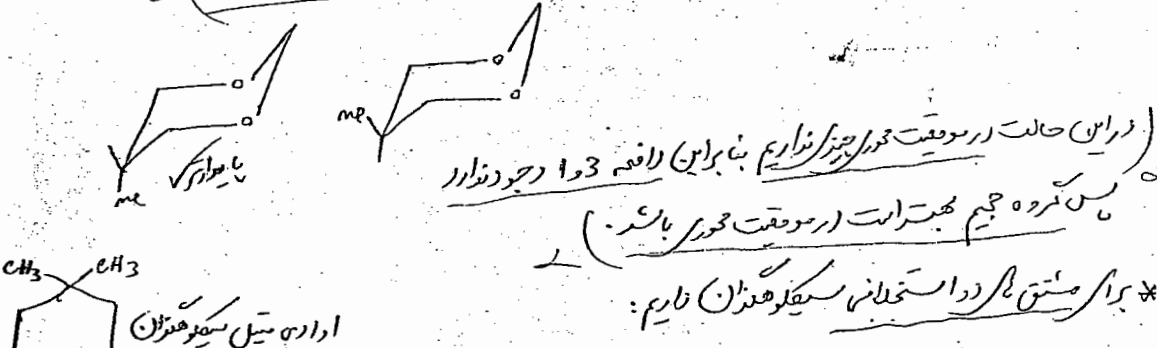 o o
me
پایدارتر ✓
o o
me
(در این حالت در موقعیت محوری چیزی نداریم بنابراین دافعه 3 و 1 وجود ندارد
پس گروه حجیم بهتر است در موقعیت محوری باشد.)
* برای مشتق های دو استخلافی سیکلوهگزان داریم:
CH3 CH3
او۱دی متیل سیکلوهگزان